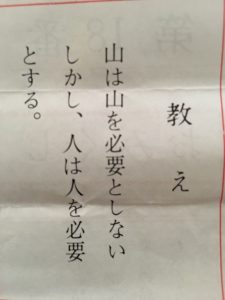 教え
山は山を必要としない
しかし、人は人を必要
とする。